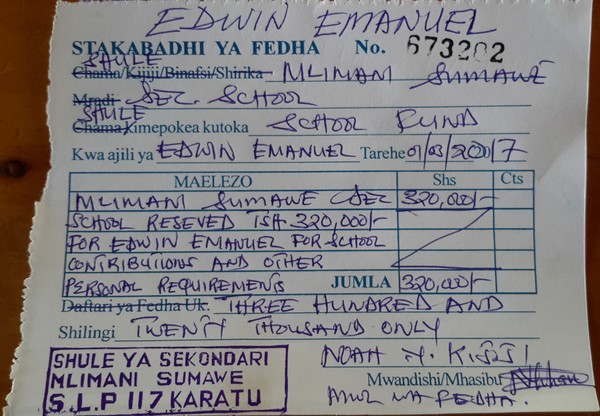 EDWIN EMANUEL
STAKABADHI YA FEDHA No. 673202
SHULE
Chama/Kijiji/Binafsi/Shirika MLIMANI SUMAWE
Mradi SEC. SCHOOL
SHULE
Chama Kimepokea kutoka SCHOOL FUND
Kwa ajili ya EDWIN EMANUEL Tarehe 01/03/2017
MAELEZO Shs Cts
MLIMANI SUMAWE SEC 320,000/-
SCHOOL RESEVED TSH 320,000/-
FOR EDWIN EMANUEL FOR SCHOOL
CONTRIBUTIONS AND OTHER
PERSONAL REQUIREMENTS JUMLA 320,000/-
Daftari ya Fedha Uk. THREE HUNDRED AND
Shilingi TWENTY THOUSAND ONLY
NOAH N.
SHULE YA SEKONDARI
MLIMANI SUMAWE
S.L.P 117 KARATU
Mwandishi/Mhasibu
FEDHA.